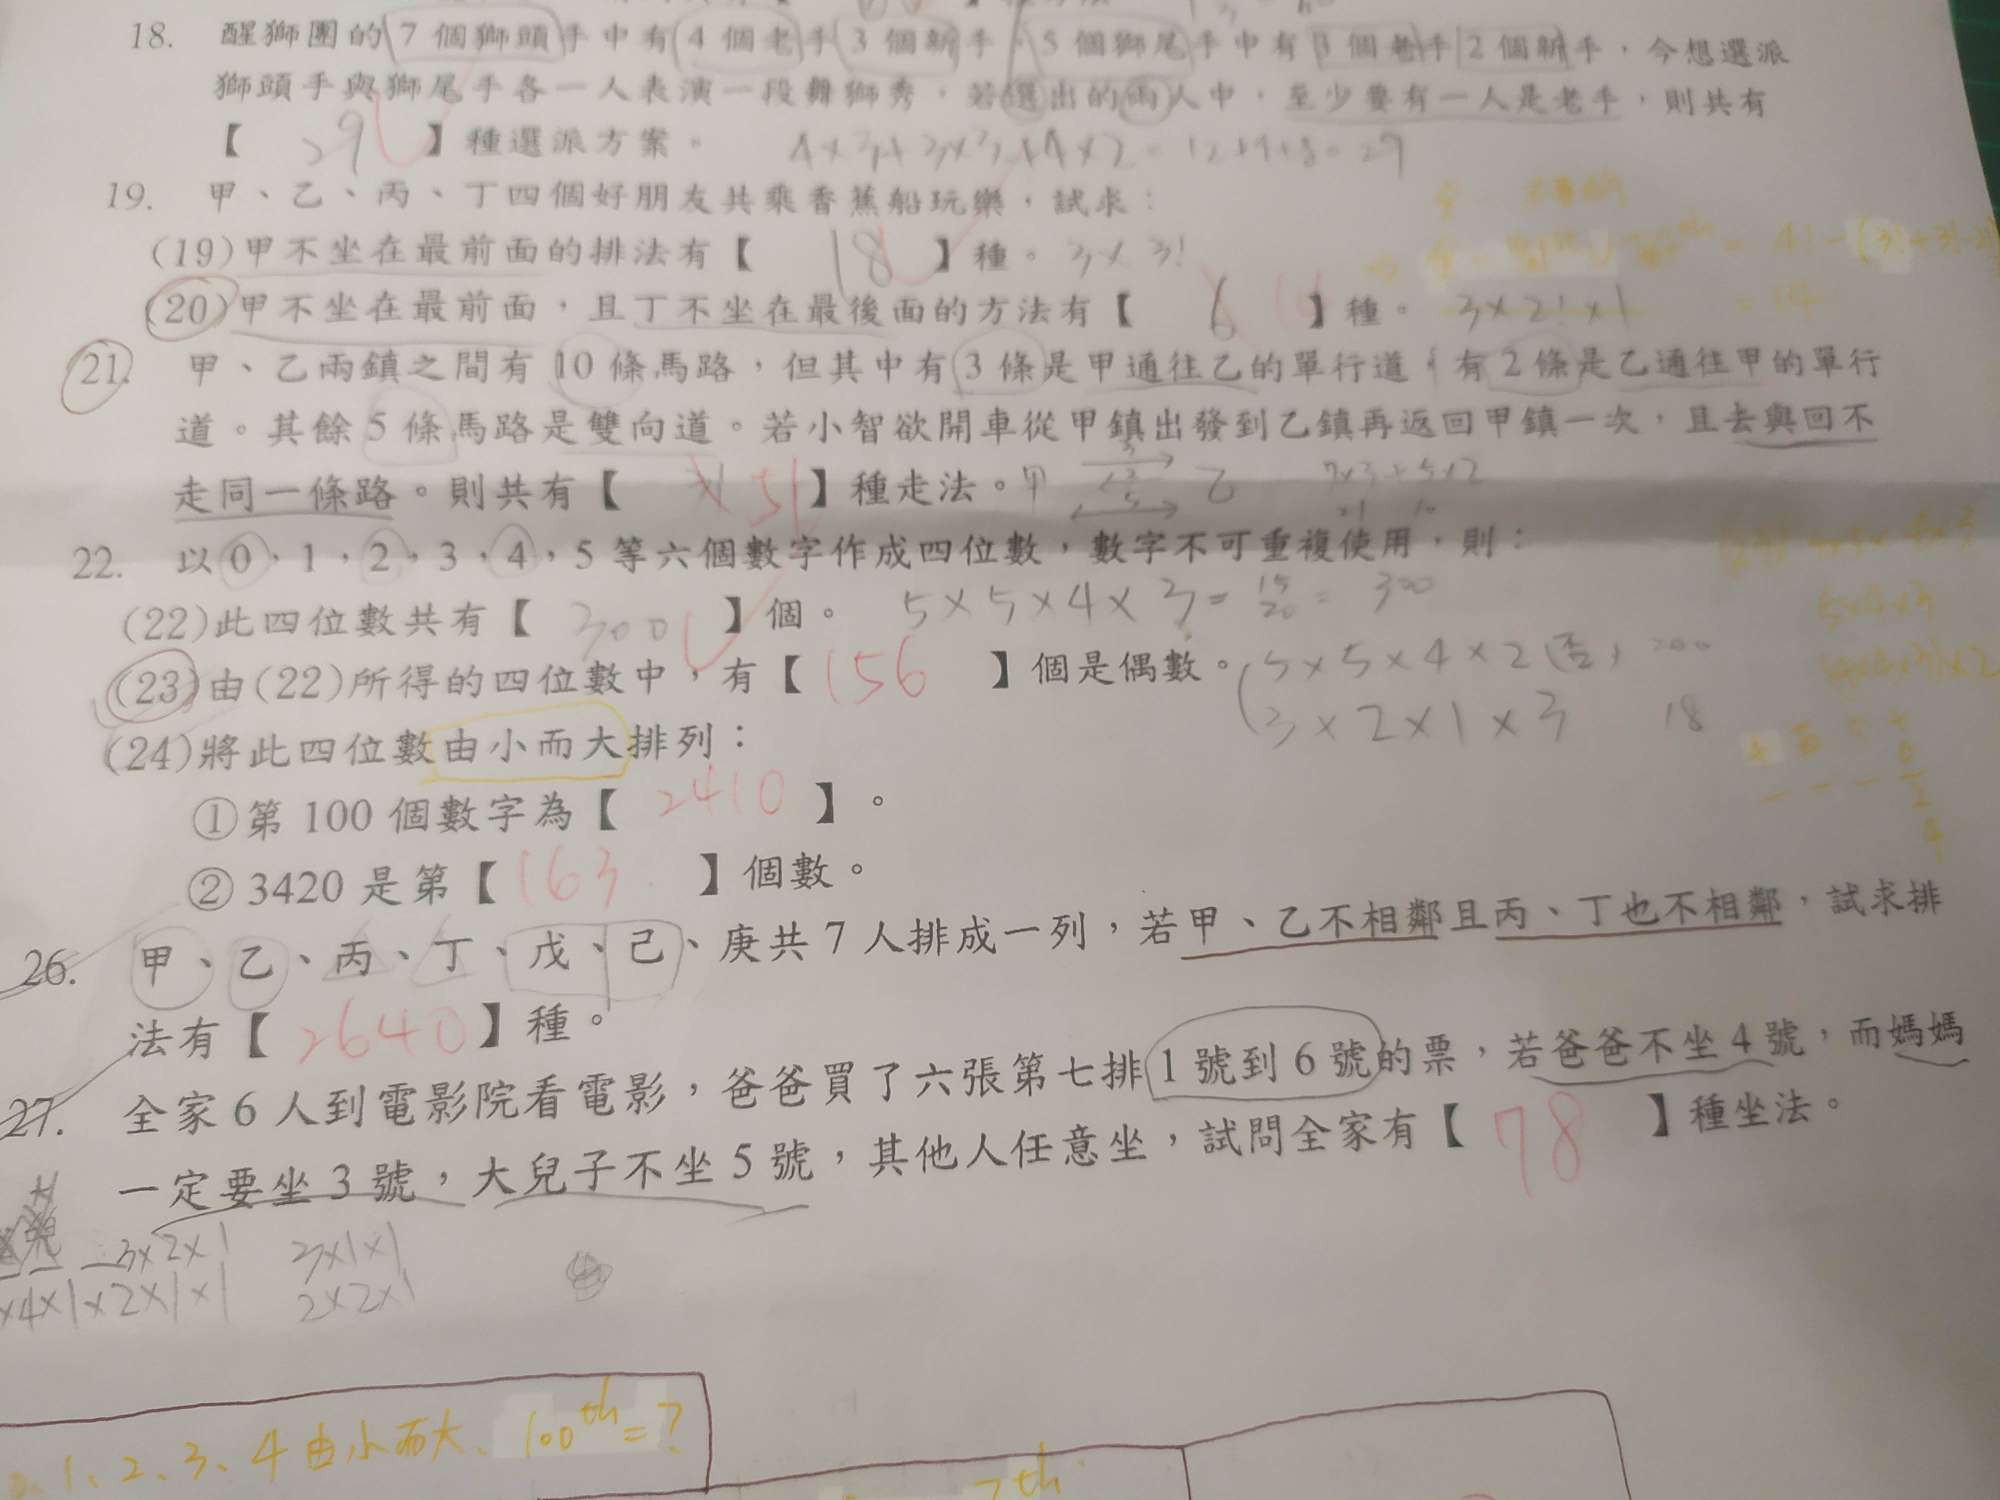 18. 醒獅團的7個獅頭手中有4個老手3個新手，5個獅尾手中有3個老手2個新手，今想選派
獅頭手與獅尾手各一人表演一段舞獅秀，若選出的兩人中，至少要有一人是老手，則共有
【 29 】種選派方案。 4×3+3×3+4×2=12+9+8=29
19. 甲、乙、丙、丁四個好朋友共乘香蕉船玩樂，試求：
(19)甲不坐在最前面的排法有【 18 】種。 3×3!
(20)甲不坐在最前面，且丁不坐在最後面的方法有【 6 】種。 3×2!×1 =14
21. 甲、乙兩鎮之間有10條馬路，但其中有3條是甲通往乙的單行道，有2條是乙通往甲的單行
道。其餘5條馬路是雙向道。若小智欲開車從甲鎮出發到乙鎮再返回甲鎮一次，且去與回不
走同一條路。則共有【 51 】種走法。甲 3 2 5 乙 7×3+5×2
21 10
22. 以0，1，2，3，4，5等六個數字作成四位數，數字不可重複使用，則：
(22)此四位數共有【 300 】個。 5×5×4×3= 15 20 = 300
(23)由(22)所得的四位數中，有【 156 】個是偶數。 5×5×4×2 200
3×2×1×3 18
(24)將此四位數由小而大排列：
①第100個數字為【 2410 】。
②3420是第【 163 】個數。
26. 甲、乙、丙、丁、戊、己、庚共7人排成一列，若甲、乙不相鄰且丙、丁也不相鄰，試求排
法有【 2640 】種。
27. 全家6人到電影院看電影，爸爸買了六張第七排1號到6號的票，若爸爸不坐4號，而媽媽
一定要坐3號，大兒子不坐5號，其他人任意坐，試問全家有【 78 】種坐法。
3×2×1 3×1×1
×4×1×2×1×1 2×2×1
0、1、2、3、4由小而大、100th=?
7th